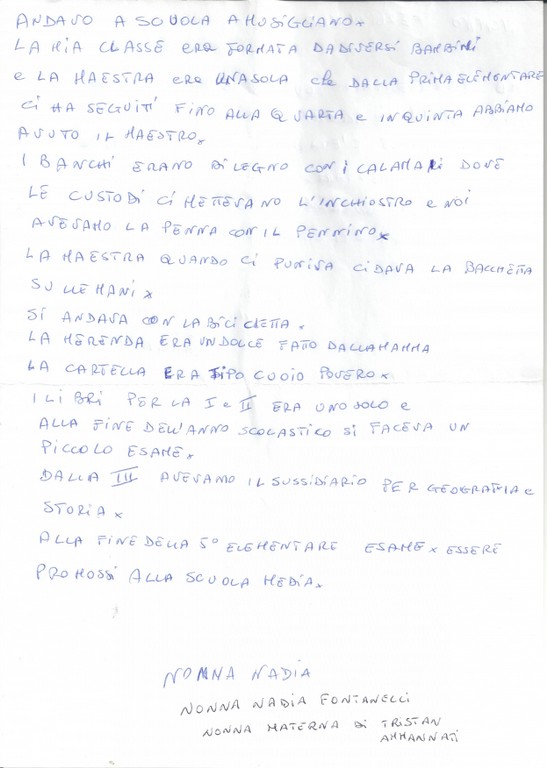 ANDAVO A SCUOLA A MUSIGLIANO.
LA MIA CLASSE ERA FORMATA DA DIVERSI BAMBINI
E LA MAESTRA ERA UNA SOLA CHE DALLA PRIMA ELEMENTARE
CI HA SEGUITI FINO ALLA QUARTA E IN QUINTA ABBIAMO
AVUTO IL MAESTRO.
I BANCHI ERANO DI LEGNO CON I CALAMAI DOVE
LE CUSTODI CI METTEVANO L'INCHIOSTRO E NOI
AVEVAMO LA PENNA CON IL PENNINO.
LA MAESTRA QUANDO CI PUNIVA CI DAVA LA BACCHETTA
SULLE MANI.
SI ANDAVA CON LA BICICLETTA.
LA MERENDA ERA UN DOLCE FATO DALLA MAMMA
LA CARTELLA ERA TIPO CUOIO POVERO.
I LIBRI PER LA I E II ERA UNO SOLO E
ALLA FINE DELL'ANNO SCOLASTICO SI FACEVA UN
PICCOLO ESAME.
DALLA III AVEVAMO IL SUSSIDIARIO PER GEOGRAFIA E
STORIA.
ALLA FINE DELLA 5° ELEMENTARE ESAME X ESSERE
PROMOSSI ALLA SCUOLA MEDIA.
NONNA NADIA
NONNA NADIA FONTANELLI
NONNA MATERNA DI TRISTAN
AMMANNATI